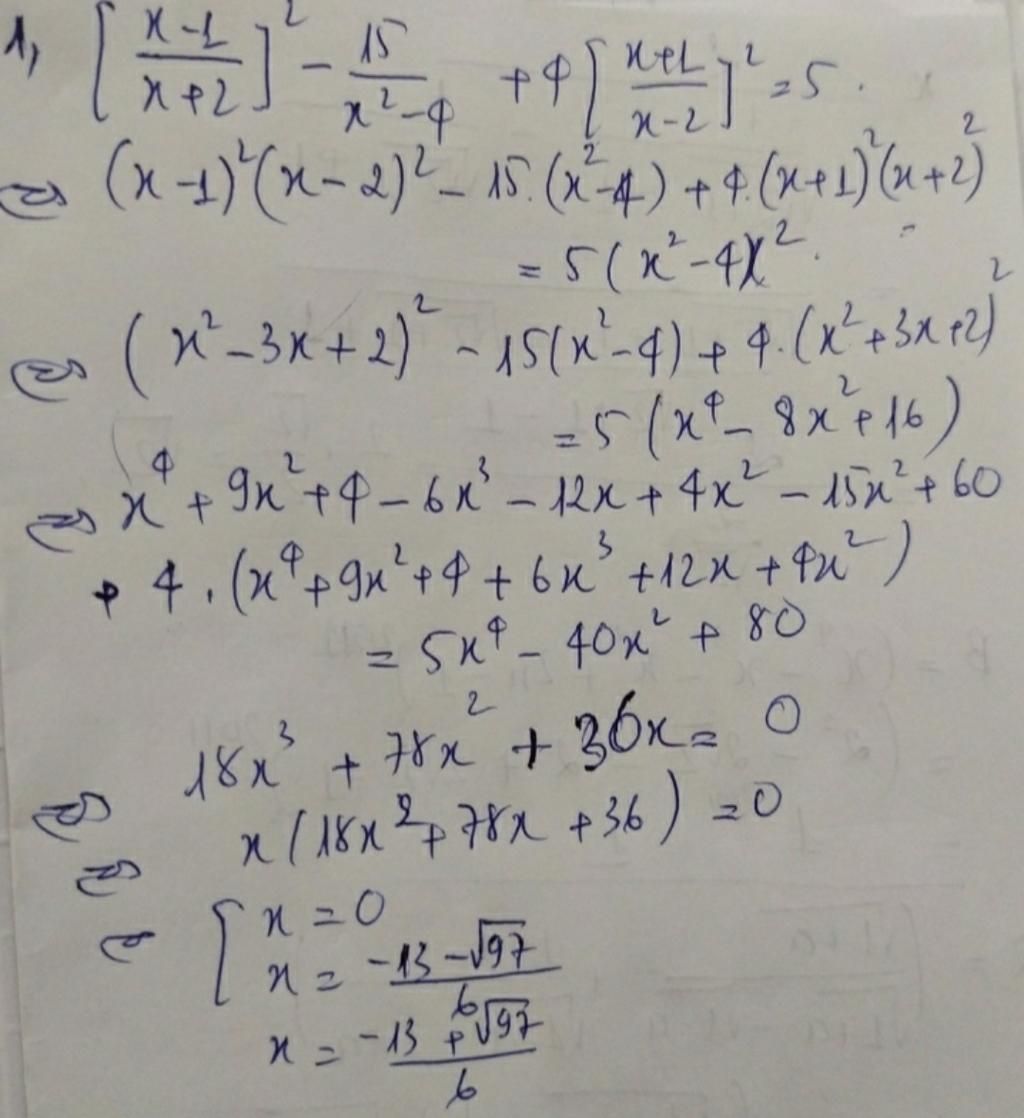 1, [(x-1)/(x+2)]² - 15/(x²-4) + 4[(x+1)/(x-2)]² = 5.
⇔ (x-1)²(x-2)² - 15.(x²-4) + 4.(x+1)²(x+2)²
= 5(x²-4)².
⇔ (x²-3x+2)² - 15(x²-4) + 4.(x²+3x+2)²
= 5(x⁴-8x²+16)
⇔ x⁴+9x²+4-6x³-12x+4x²-15x²+60
+ 4.(x⁴+9x²+4+6x³+12x+4x²)
= 5x⁴-40x²+80
⇔ 18x³+78x²+36x = 0
⇔ x(18x²+78x+36) = 0
⇔ [ x = 0
x = (-13-√97)/6
x = (-13+√97)/6